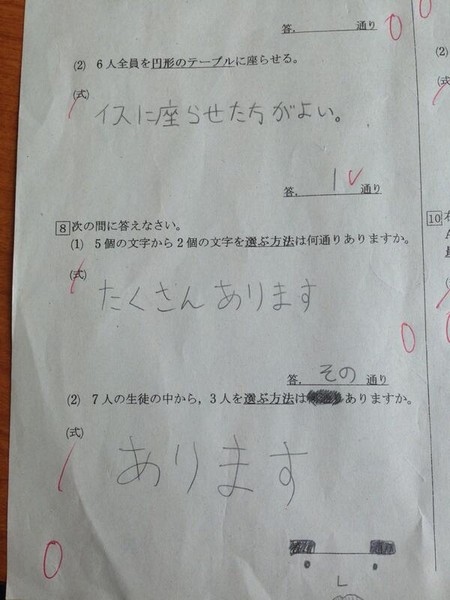 答. 通り 0
(2) 6人全員を円形のテーブルに座らせる。
(式)
イスに座らせた方がよい。
答. 1 通り
8 次の問に答えなさい。
(1) 5個の文字から2個の文字を選ぶ方法は何通りありますか。
(式)
たくさんあります
0
答. その 通り
(2) 7人の生徒の中から,3人を選ぶ方法はありますか。
(式)
あります
0
(2)
(式)
10